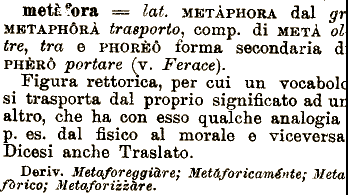 metàfora = lat. METÀPHORA dal gr
METAPHÔRÀ trasporto, comp. di METÀ ol
tre, tra e PHORÈÔ forma secondaria d
PHÈRÔ portare (v. Ferace).
Figura rettorica, per cui un vocabolo
si trasporta dal proprio significato ad un
altro, che ha con esso qualche analogia
p. es. dal fisico al morale e viceversa
Dicesi anche Traslato.
Deriv. Metaforeggiàre; Metàforicaménte; Meta
fòrico; Metaforizzàre.